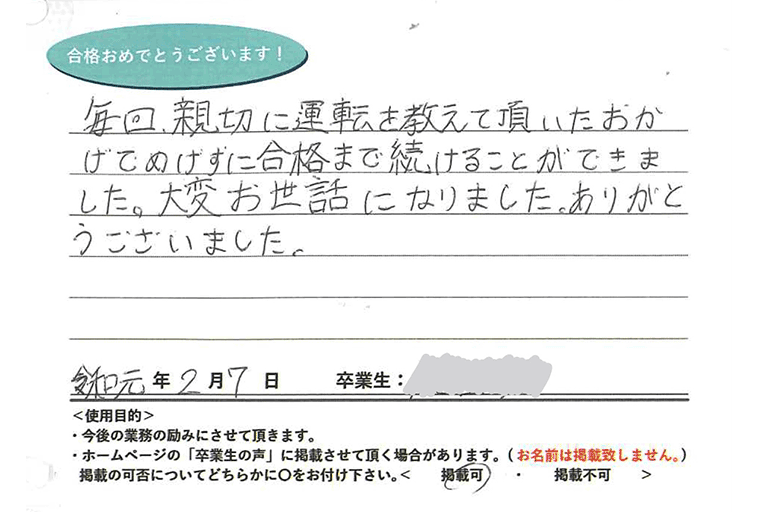 合格おめでとうございます！
毎回、親切に運転を教えて頂いたおか
げでめげずに合格まで続けることができま
した。大変お世話になりました。ありがと
うございました。
令和元年2月7日 卒業生：
＜使用目的＞
・今後の業務の励みにさせて頂きます。
・ホームページの「卒業生の声」に掲載させて頂く場合があります。（お名前は掲載致しません。）
掲載の可否についてどちらかに〇をお付け下さい。＜ 掲載可 ・ 掲載不可 ＞